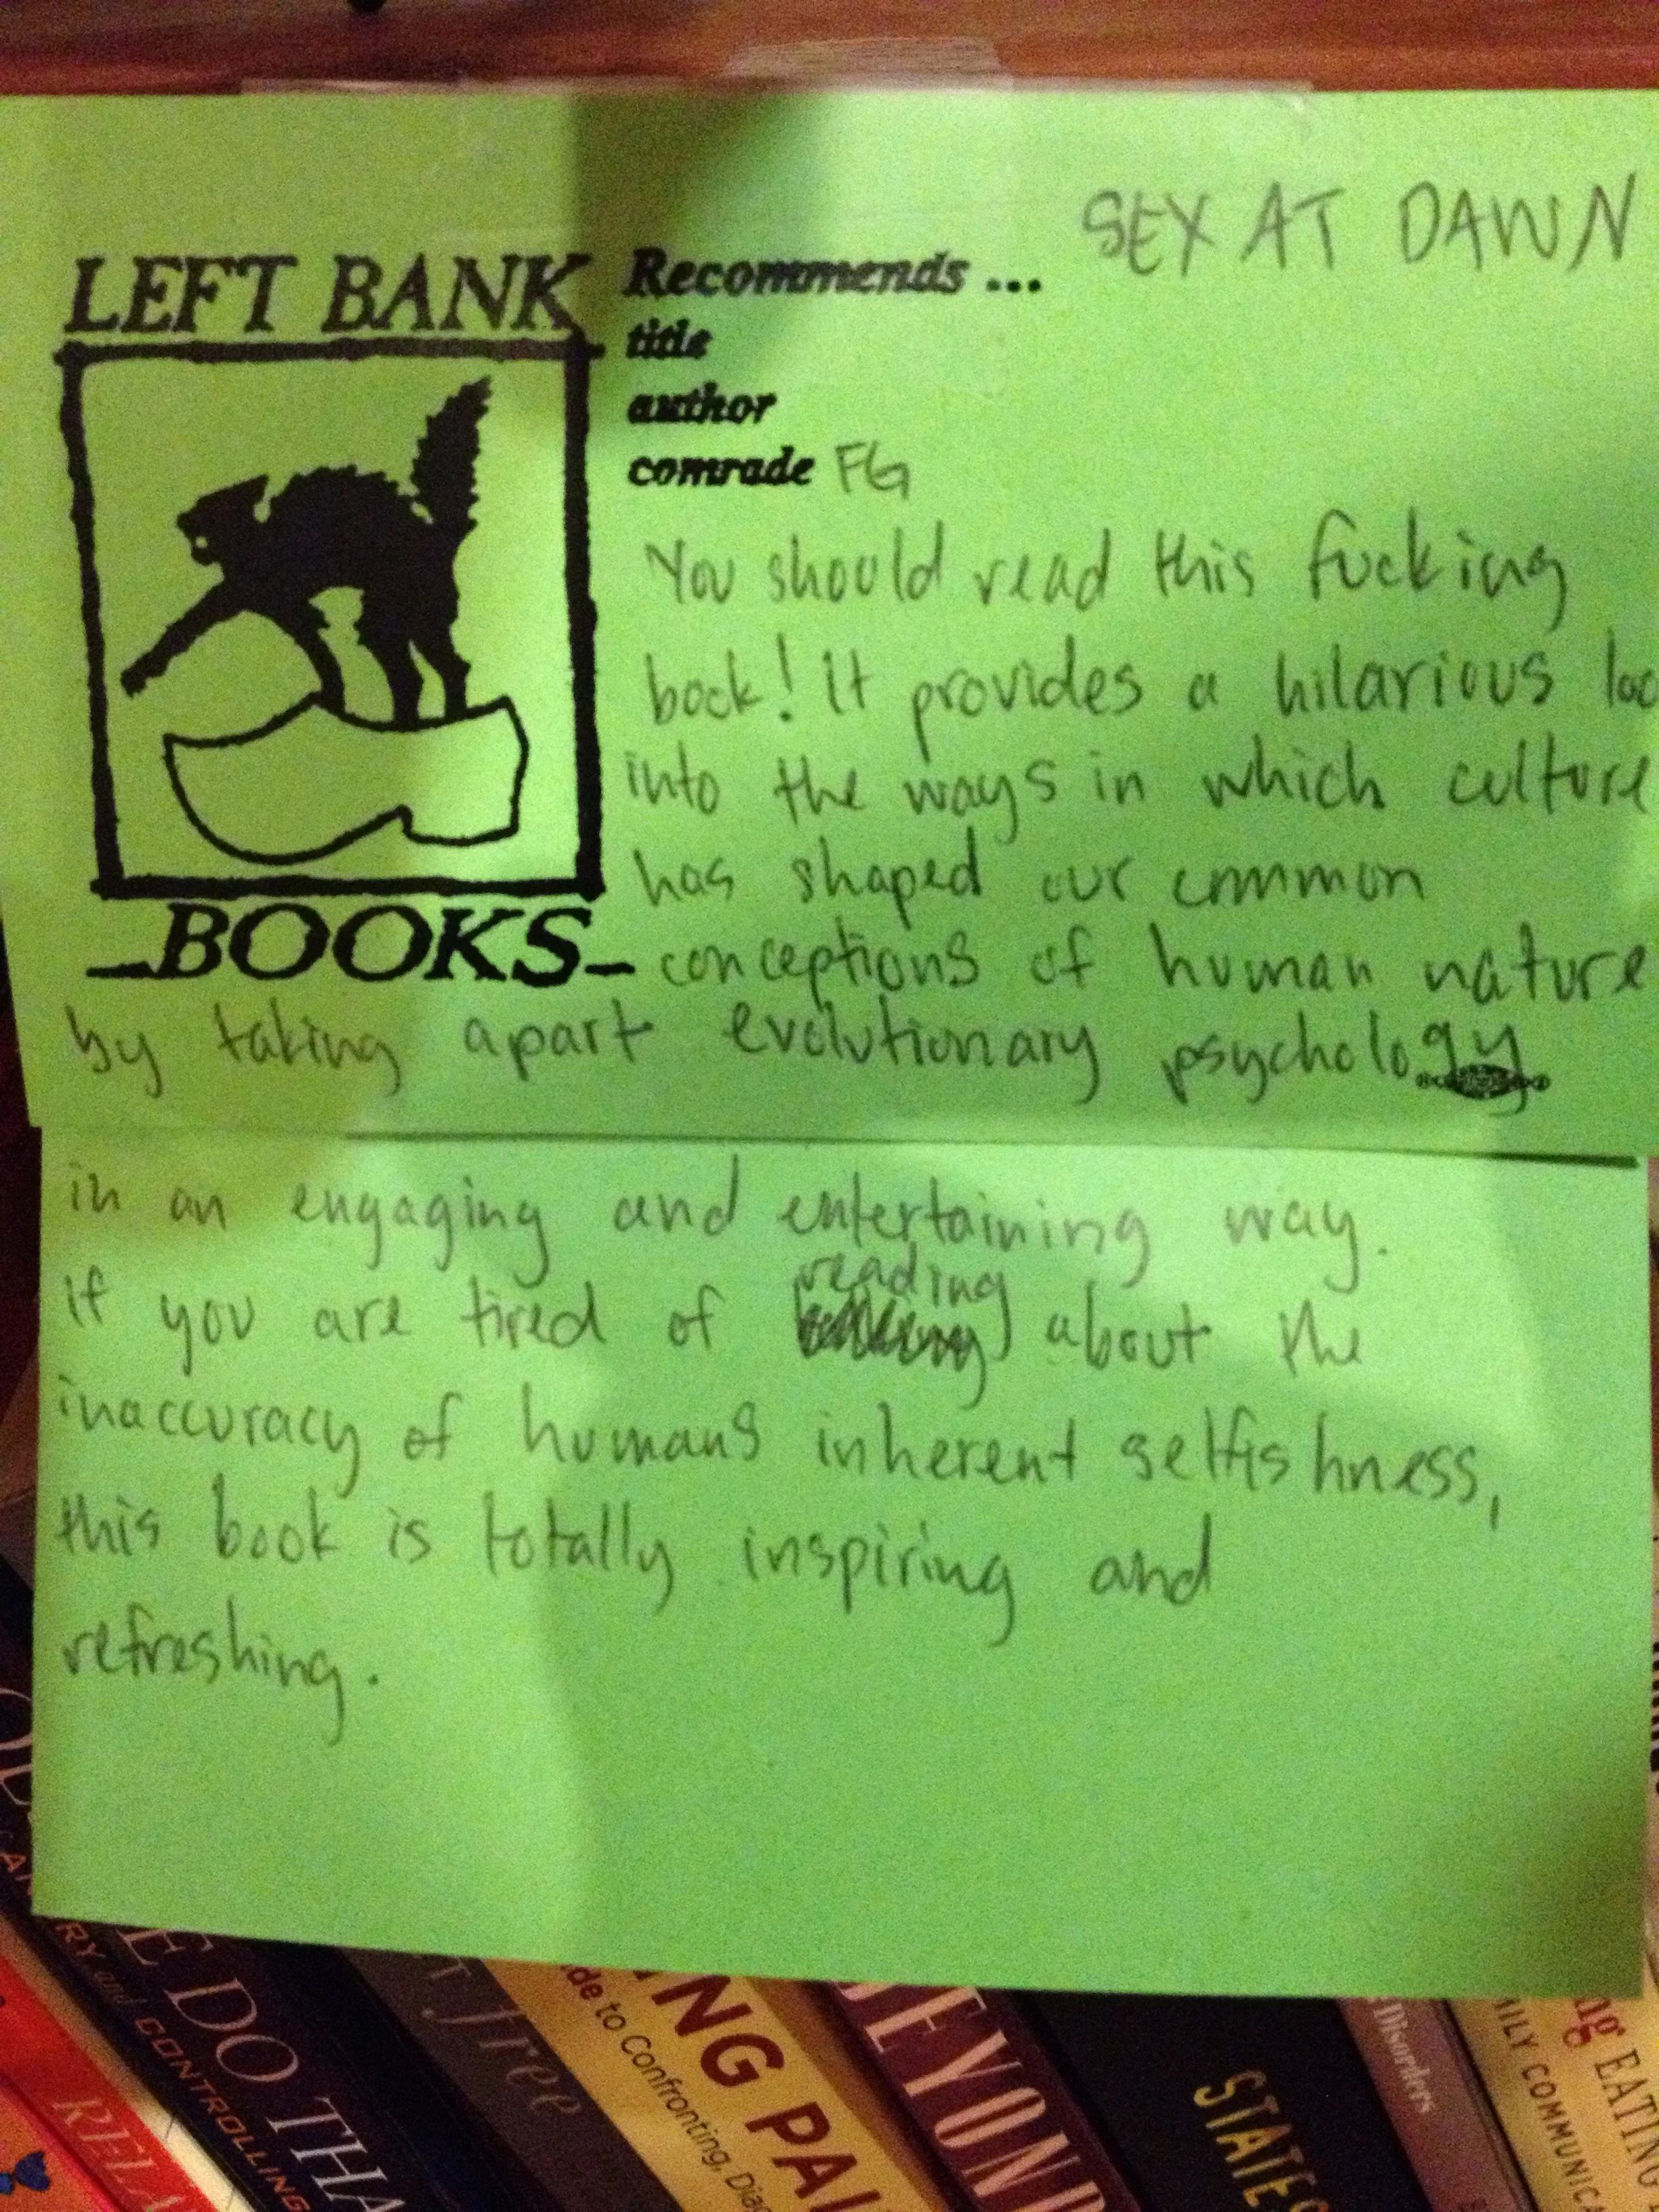 SEX AT DAWN
LEFT BANK
Recommends ...
title
author
comrade FG
You should read this fucking
book! It provides a hilarious loo
into the ways in which culture
has shaped our common
BOOKS
conceptions of human nature
by taking apart evolutionary psychology
in an engaging and entertaining way.
reading
If you are tired of about the
inaccuracy of humans inherent selfishness,
this book is totally inspiring and
refreshing.
RELA
E DO THA
RY and CONTROLLING
T Free
NG PAI
de to Confronting, Dia
BEYOND
STATES
Disorders
ng EATING
ILY COMMUNIC